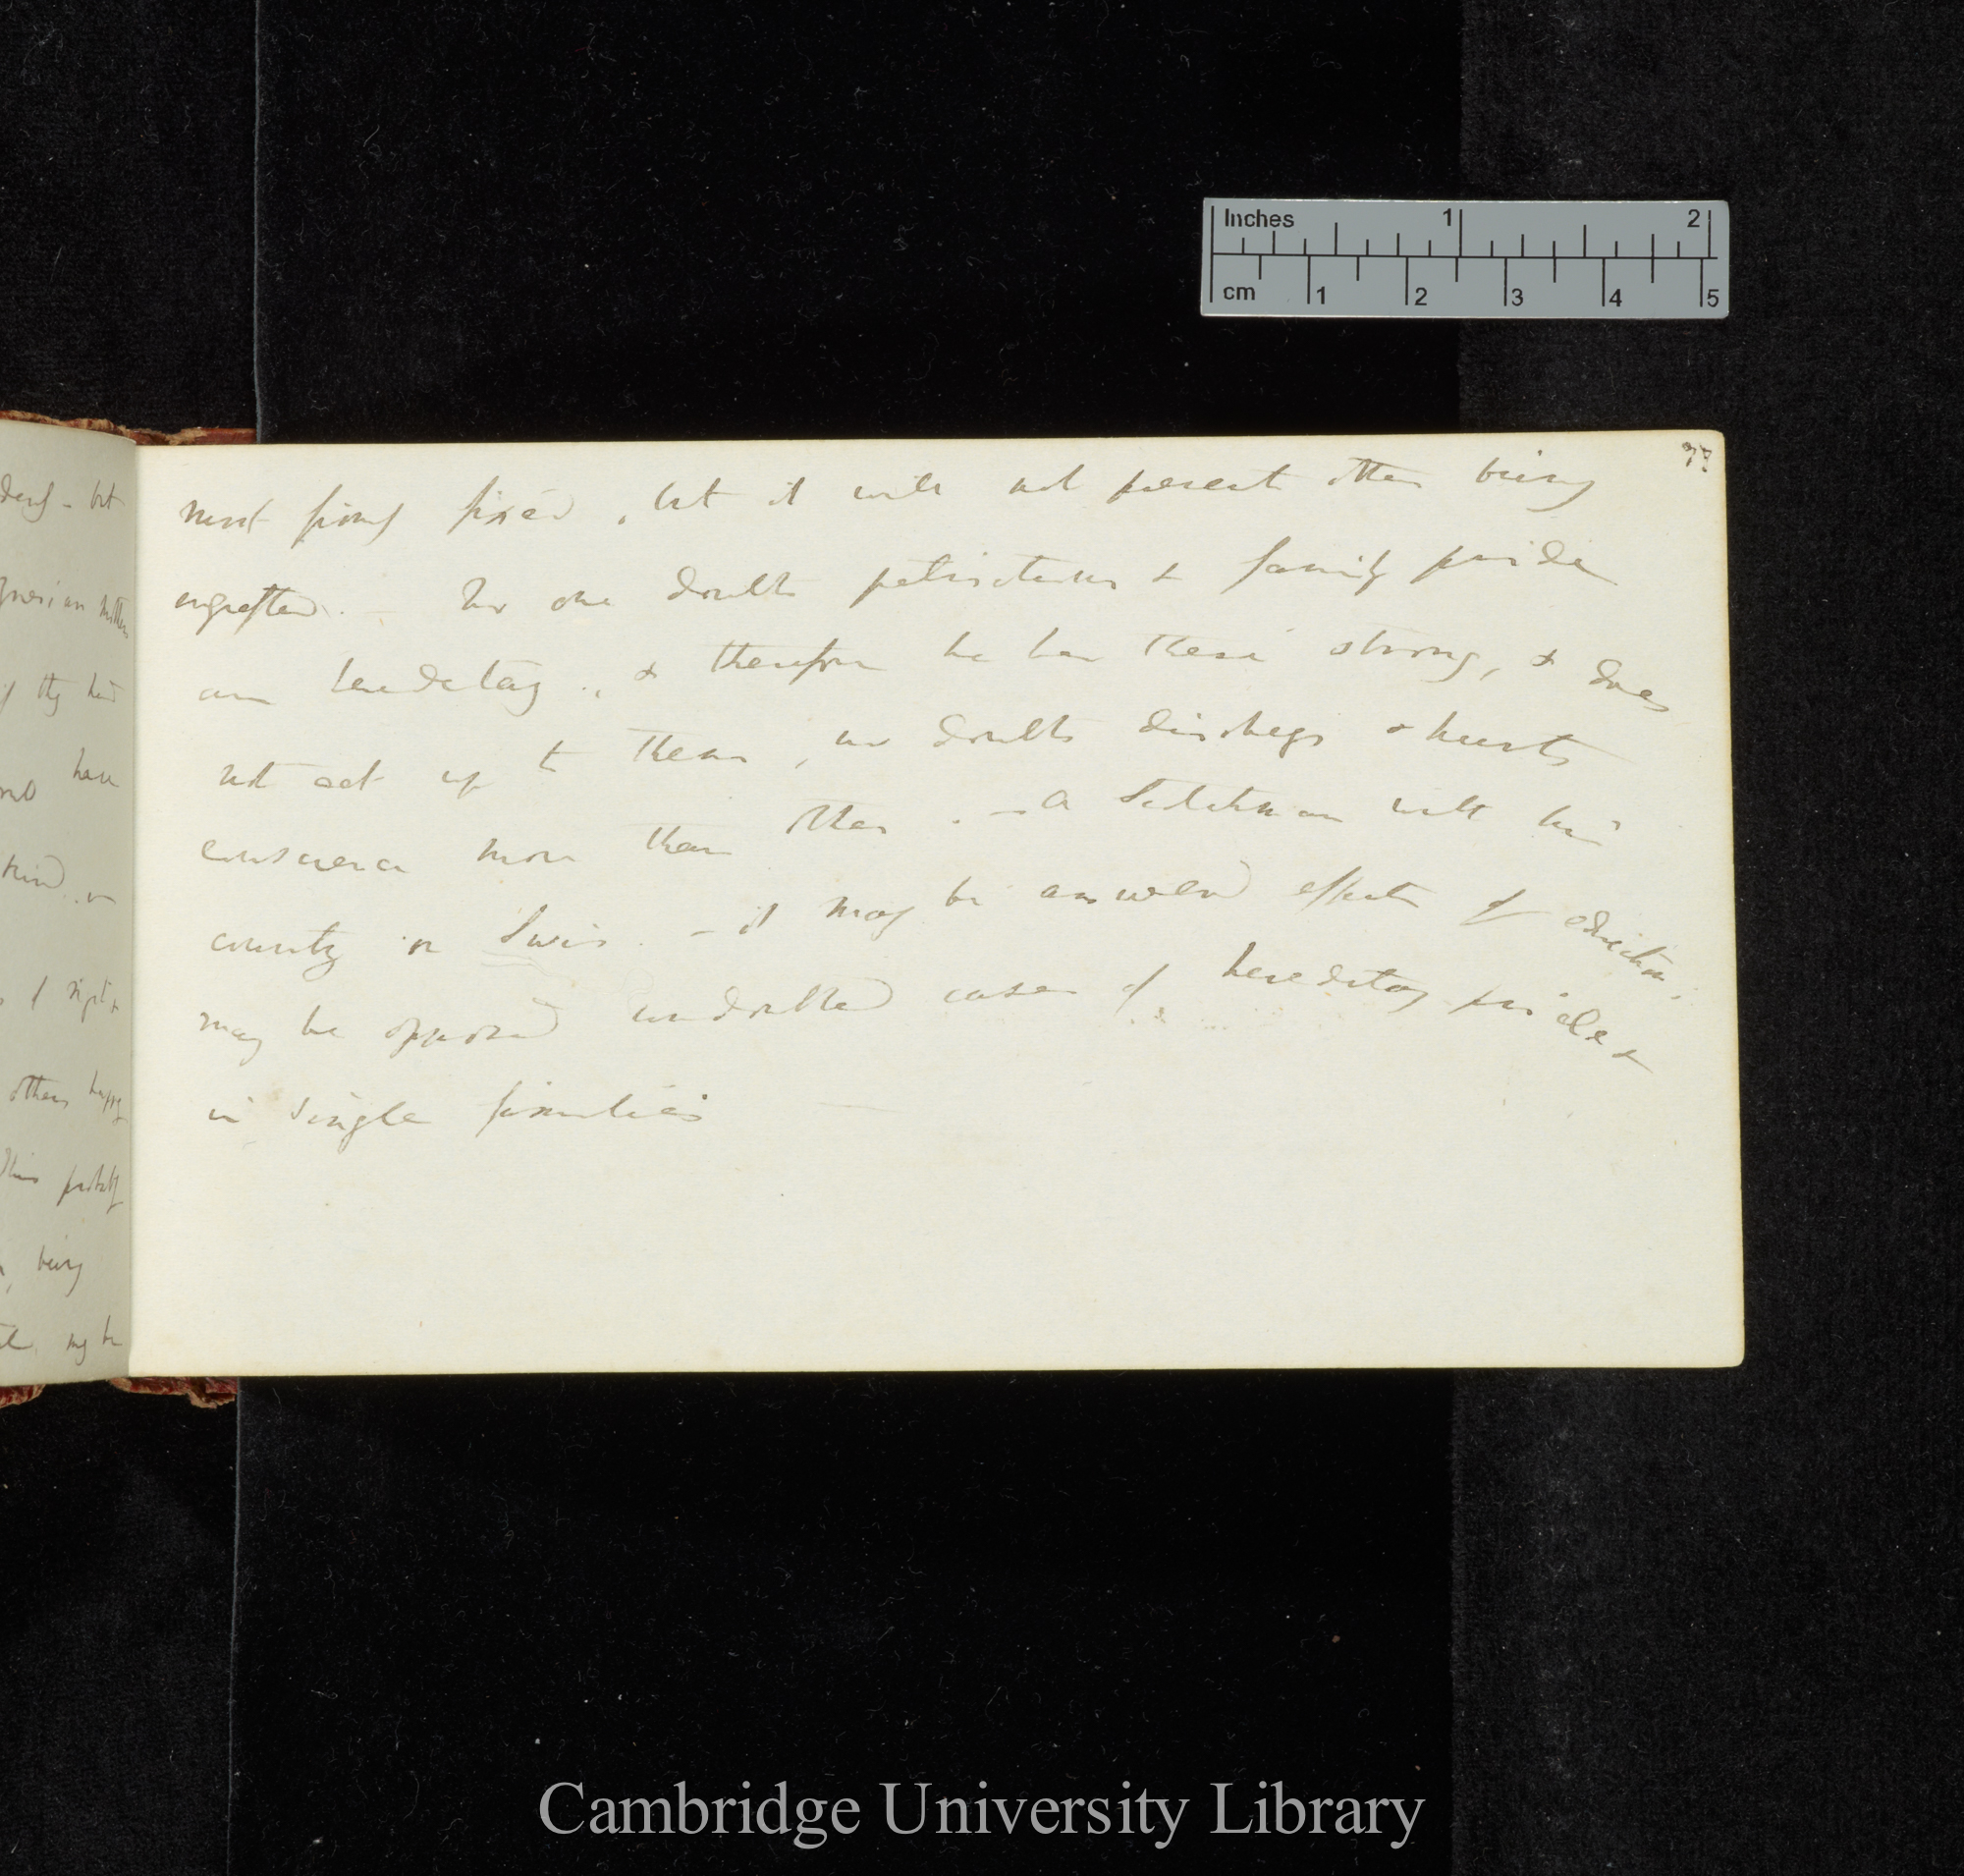 Inches 1 2
cm 1 2 3 4 5
77
most firmly fixed, but it will not prevent others being
engrafted. — No one doubts patriotism & family pride
are hereditary., & therefore he has these strong, & does
not act up to them, no doubts disobeys & hurts
conscience more than other. — a Scotchman with his
country or Swiss. — it may be answered effects of education.
may be opposed undoubted cases of hereditary pride &
in single families —
but
they had
have
mind
others happy
being
may be
Cambridge University Library